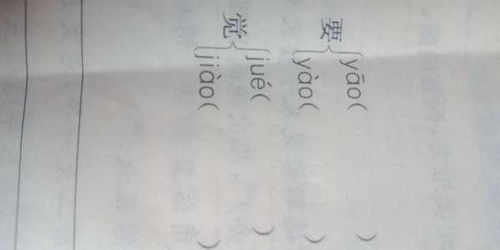 要{yāo(　　)
yào(　　)
觉{jué(　　)
jiào(　　)